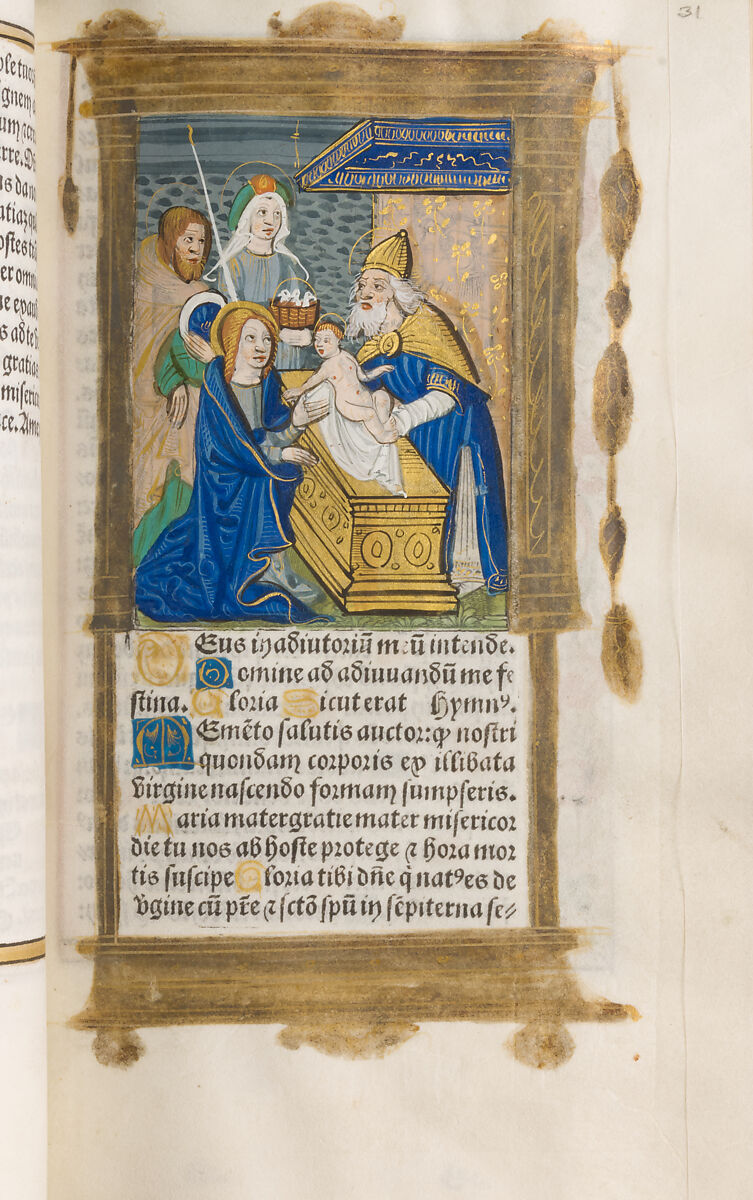 31
Deus in adiutoriũ meũ intende.
Domine ad adiuuandũ me fe
stina. Gloria Sicut erat Hymnꝰ.
MEmẽto salutis auctor: qꝫ nostri
quondam corporis ex illibata
virgine nascendo formam sumpseris.
Maria mater gratie mater misericor
die tu nos ab hoste protege ⁊ hora mor
tis suscipe Gloria tibi dñe q̇ natꝰ es de
v̓gine cũ pr̃e ⁊ sctõ spũ in sẽpiterna se⸗